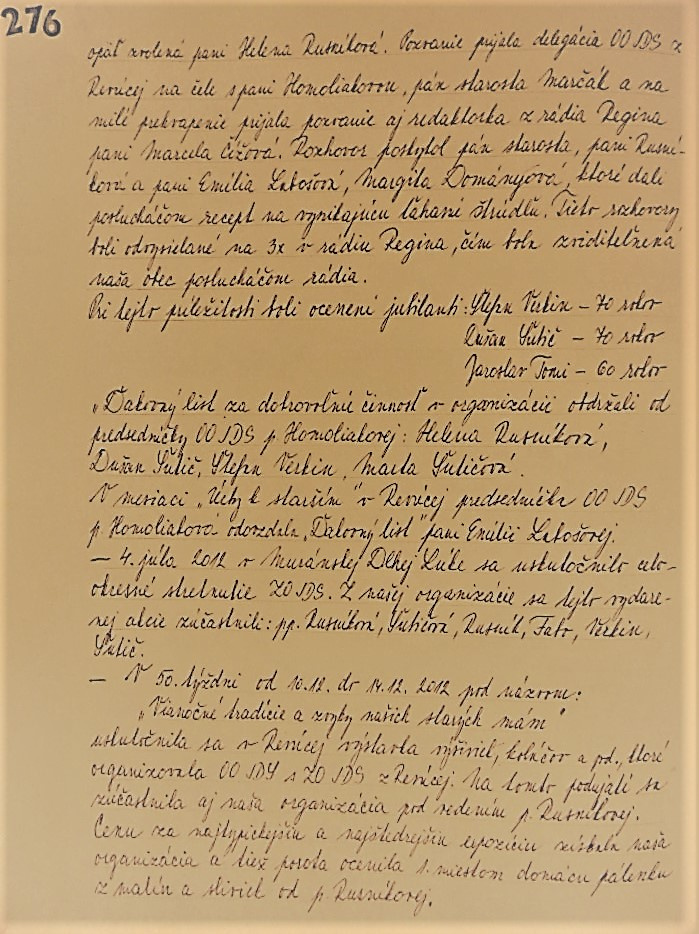 276
opäť zvolená pani Helena Rusníková. Pozvanie prijala delegácia OO JDS z
Revúcej na čele s pani Homoliakovou, pán starosta Marčák a na
milé prekvapenie prijala pozvanie aj redaktorka z rádia Regina
pani Marcela Čížová. Rozhovor poskytol pán starosta, pani Rusní-
ková a pani Emília Lebošová, Margita Dományová, ktoré dali
poslucháčom recept na vynikajúcu ťahanú štrudľu. Tieto rozhovory
boli odvysielané na 3x v rádiu Regina, čím bola zviditeľnená
naša obec poslucháčom rádia.
Pri tejto príležitosti boli ocenení jubilanti: Štefan Verkin – 70 rokov
Dušan Šutič – 70 rokov
Jaroslav Tomi – 60 rokov
„Ďakovný list za dobrovoľnú činnosť v organizácii obdržali od
predsedníčky OO JDS p. Homoliakovej: Helena Rusníková,
Dušan Šutič, Štefan Verkin, Marta Šutičová.
V mesiaci „Úcty k starším" v Revúcej predsedníčka OO JDS
p. Homoliaková odovzdala „Ďakovný list" pani Emílii Lebošovej.
– 4. júla 2012 v Muránskej Dlhej Lúke sa uskutočnilo celo-
okresné stretnutie ZO JDS. Z našej organizácie sa tejto vydare-
nej akcie zúčastnili: pp. Rusníková, Šutičová, Rusník, Fabo, Verkin,
Šutič.
– V 50. týždni od 10.12. do 14.12. 2012 pod názvom:
„Vianočné tradície a zvyky našich starých mám"
uskutočnila sa v Revúcej výstavka výšiviek, koláčov a pod., ktoré
organizovala OO JDS s ZO JDS z Revúcej. Na tomto podujatí sa
zúčastnila aj naša organizácia pod vedením p. Rusníkovej.
Cenu za najtypickejšiu a najštedrejšiu expozíciu získala naša
organizácia a tiež porota ocenila 1. miestom domácu pálenku
z malín a sliviek od p. Rusníkovej.